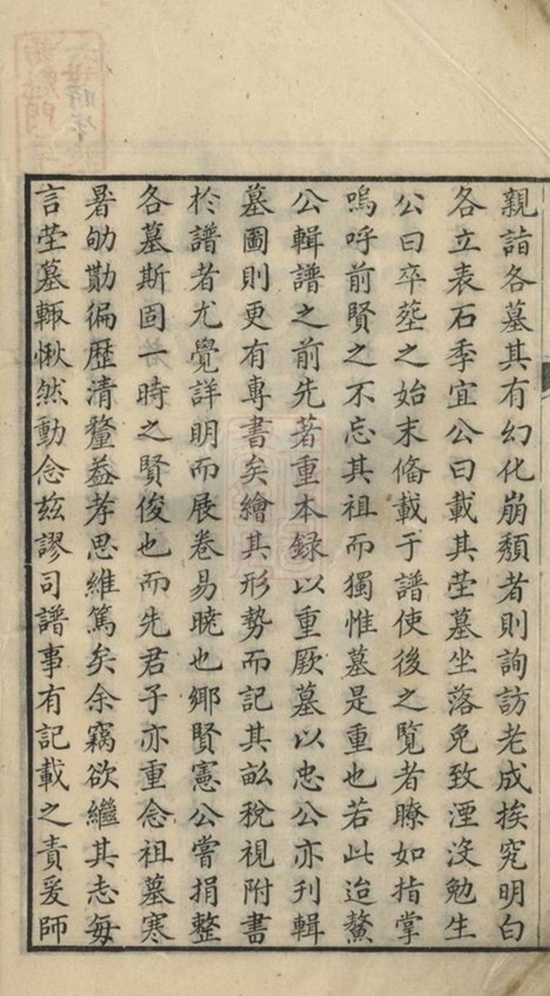 親詣各墓其有幻化崩頽者則詢訪老成挨究明白
各立表石季宜公曰載其塋墓坐落免致湮沒勉生
公曰卒塟之始末俻載于譜使後之覧者瞭如指掌
嗚呼前賢之不忘其祖而獨惟墓是重也若此迨鰲
公輯譜之前先著重本録以重厥墓以忠公亦刊輯
墓圖則更有專書矣繪其形勢而記其畝稅視附書
於譜者尤覺詳明而展卷易曉也鄉賢憲公嘗捐整
各墓斯固一時之賢俊也而先君子亦重念祖墓寒
暑劬勩徧歴清釐益孝思維篤矣余竊欲繼其志每
言塋墓輒愀然動念茲謬司譜事有記載之責爰師